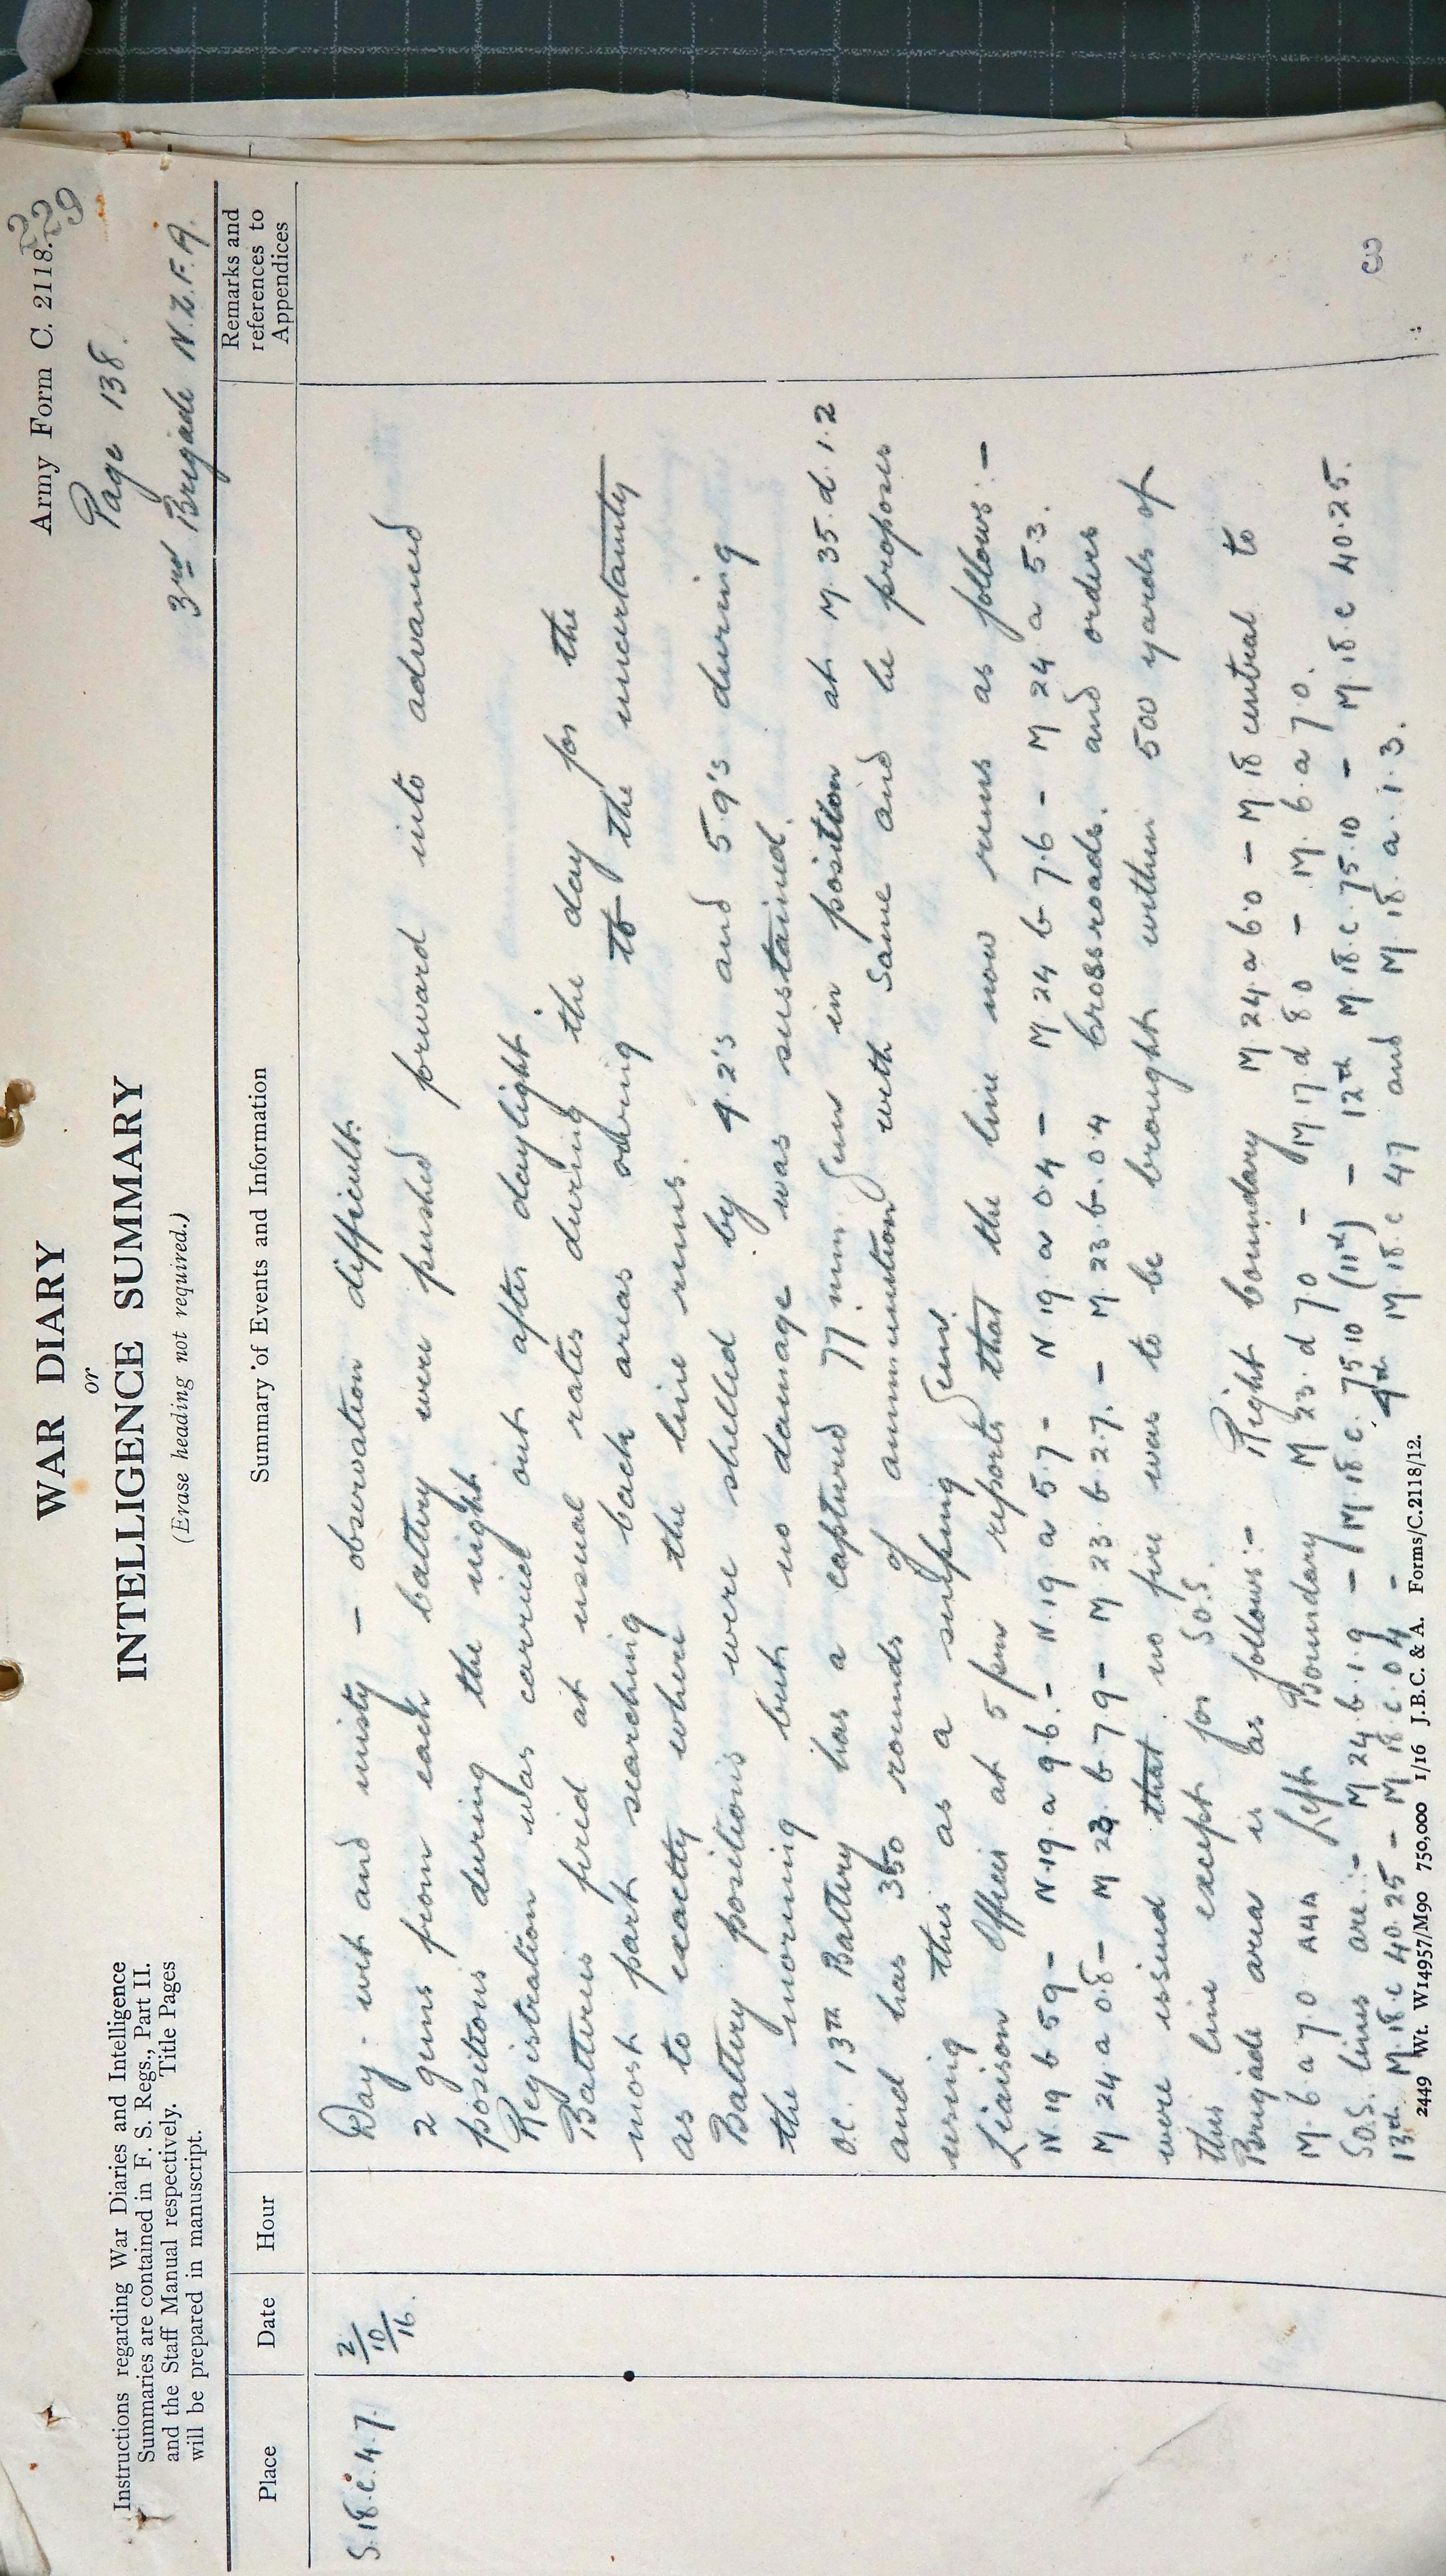 Army Form C. 2118.
229
Page 138.
3rd Brigade N.Z.F.A.
WAR DIARY
or
INTELLIGENCE SUMMARY
(Erase heading not required.)
Instructions regarding War Diaries and Intelligence
Summaries are contained in F. S. Regs., Part II.
and the Staff Manual respectively. Title Pages
will be prepared in manuscript.
Place Date Hour Summary of Events and Information Remarks and references to Appendices
S.18.c.4.7. 2/10/16. Day - wet and misty - observation difficult.
2 guns from each battery were pushed forward into advanced
positions during the night.
Registration was carried out after daylight.
Batteries fired at usual rates during the day for the
most part searching back areas owing to the uncertainty
as to exactly where the line runs.
Battery positions were shelled by 4.2's and 5.9's during
the morning but no damage was sustained.
O.C. 13th Battery has a captured 77 mm. Gun in position at M.35.d.1.2
and has 350 rounds of ammunition with same and he proposes
using this as a sniping Gun.
Liaison Officer at 5 pm reports that the line now runs as follows:-
N.19 b 5 9 - N.19.a 9 6. - N.19 a 5 7 - N 19 a 0.4 - M.24 b 7.6 - M 24 a 5.3.
M 24.a 0.8 - M 23 b 7 9 - M 23. b 2.7. - M.23.b.0.4 Crossroads. and orders
were issued that no fire was to be brought within 500 yards of
this line except for S.O.S.
Brigade area is as follows:- Right boundary M 24.a 6.0 - M 18 central to
M.6 a 7.0 and Left Boundary M 23.d 7.0 - M.17.d 8.0 - M.6.a 7.0.
S.O.S. lines are:- M 24.b.1.9 - M.18.c.75.10 (11th) - 12th M.18.c.75.10 - M.18.c 40.25.
13th M.18.c 40.25 - M.18.c.0.4 - 4th M.18.c 4 7 and M.18.a.1.3.
2449 Wt. W14957/M90 750,000 1/16 J.B.C. & A. Forms/C.2118/12.